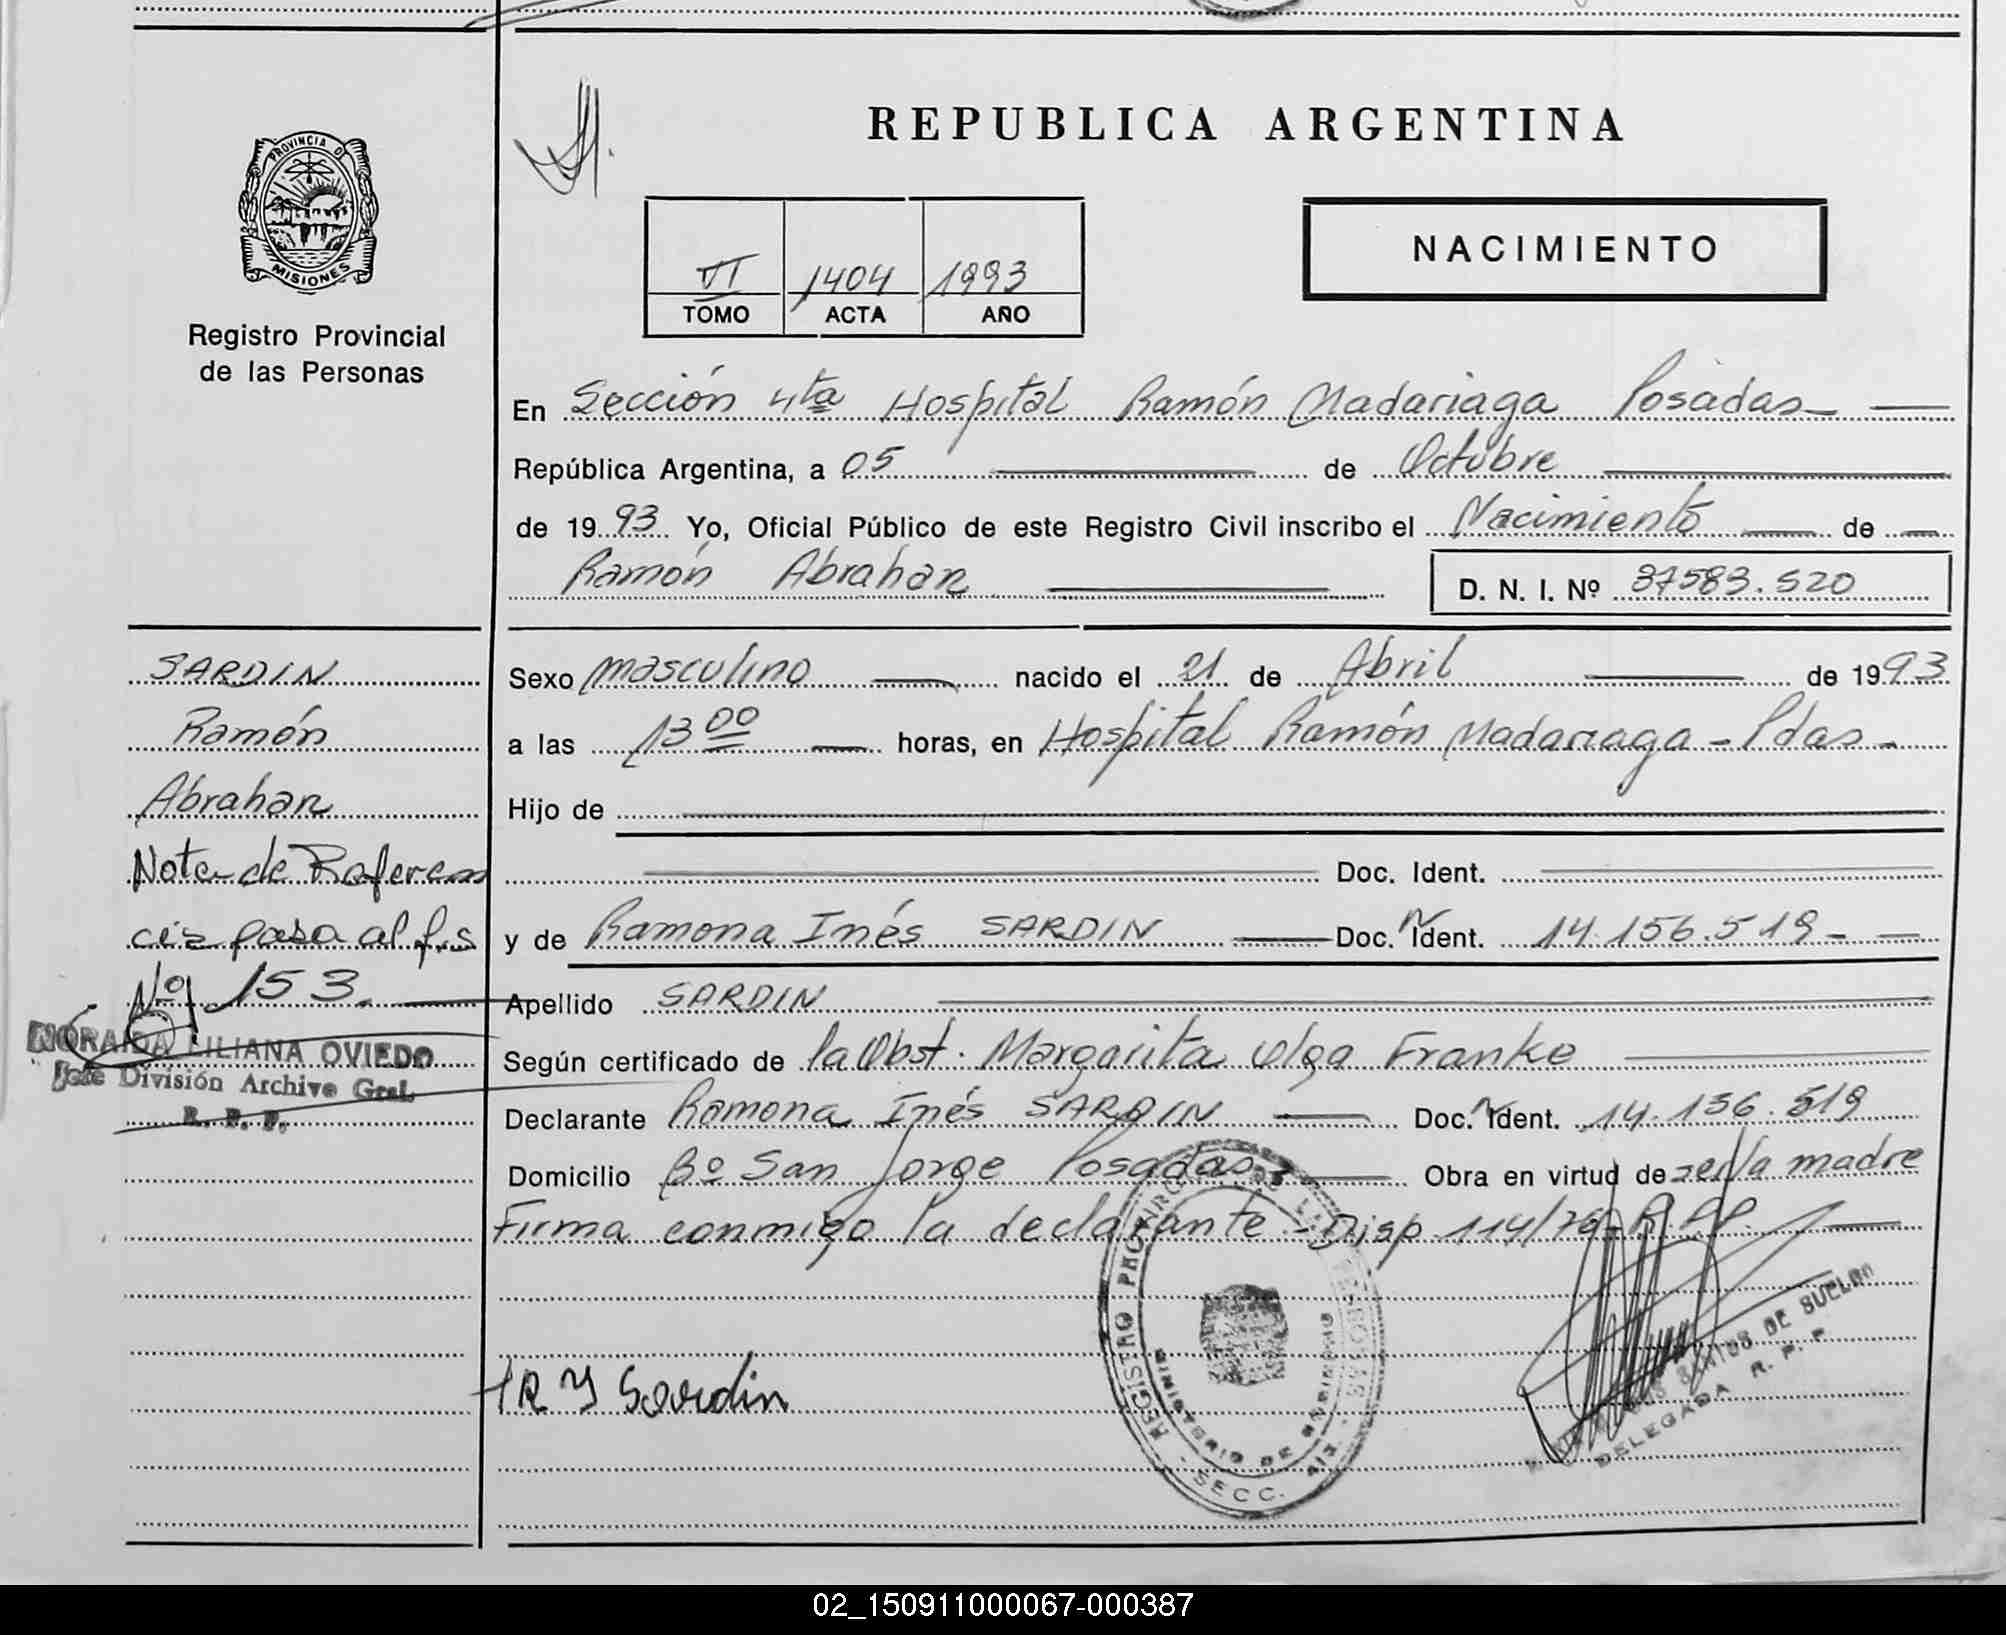 REPUBLICA ARGENTINA
PROVINCIA DE
MISIONES
Registro Provincial
de las Personas
NACIMIENTO
VI 1404 1993
TOMO ACTA AÑO
En Sección 4ta Hospital Ramón Madariaga Posadas
República Argentina, a 05 de Octubre
de 1993 Yo, Oficial Público de este Registro Civil inscribo el Nacimiento de
Ramón Abrahan
D. N. I. Nº 37583.520
SARDIN
Ramón
Abrahan
Nota de Referen
cia pasa al fjs
Nº 153.
NORAIDA LILIANA OVIEDO
Jefe División Archivo Gral.
R. P. P.
Sexo masculino nacido el 21 de Abril de 1993
a las 13 00 horas, en Hospital Ramón Madariaga - Pdas -
Hijo de
Doc. Ident.
y de Ramona Inés SARDIN Doc. Ident. 14.156.519
Apellido SARDIN
Según certificado de la Obst. Margarita Olga Franke
Declarante Ramona Inés SARDIN Doc. Ident. 14.156.519
Domicilio Bº San Jorge Posadas Obra en virtud de ser la madre
Firma conmigo la declarante - Disp. 114/76 - R.PP.
R Y Sardin
REGISTRO PROVINCIAL DE LAS PERSONAS
MINISTERIO DE GOBIERNO
SECC.
DE SUELDO
DELEGADA R. P. P.
02_150911000067-000387